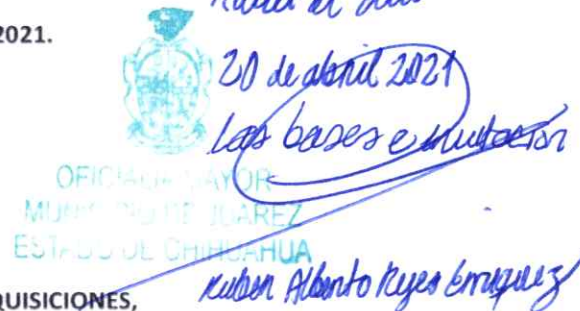 2021.
20 de abril 2021
Las bases e invitación
OFICIALIA MAYOR
MUNICIPIO DE JUAREZ
ESTADO DE CHIHUAHUA
Ruben Alberto Reyes Enriquez
QUISICIONES,